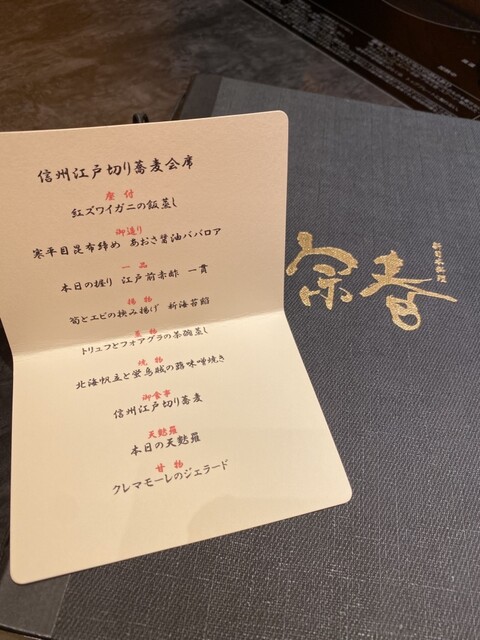 信州江戸切り蕎麦会席
座付
紅ズワイガニの飯蒸し
御造り
寒平目昆布締め あおさ醤油ババロア
一品
本日の握り 江戸前赤酢 一貫
揚物
筍とエビの挟み揚げ 新海苔餡
蒸物
トリュフとフォアグラの茶碗蒸し
焼物
北海帆立と蛍烏賊の蕗味噌焼き
御食事
信州江戸切り蕎麦
天麩羅
本日の天麩羅
甘物
クレマモーレのジェラード
宗春
新日本料理